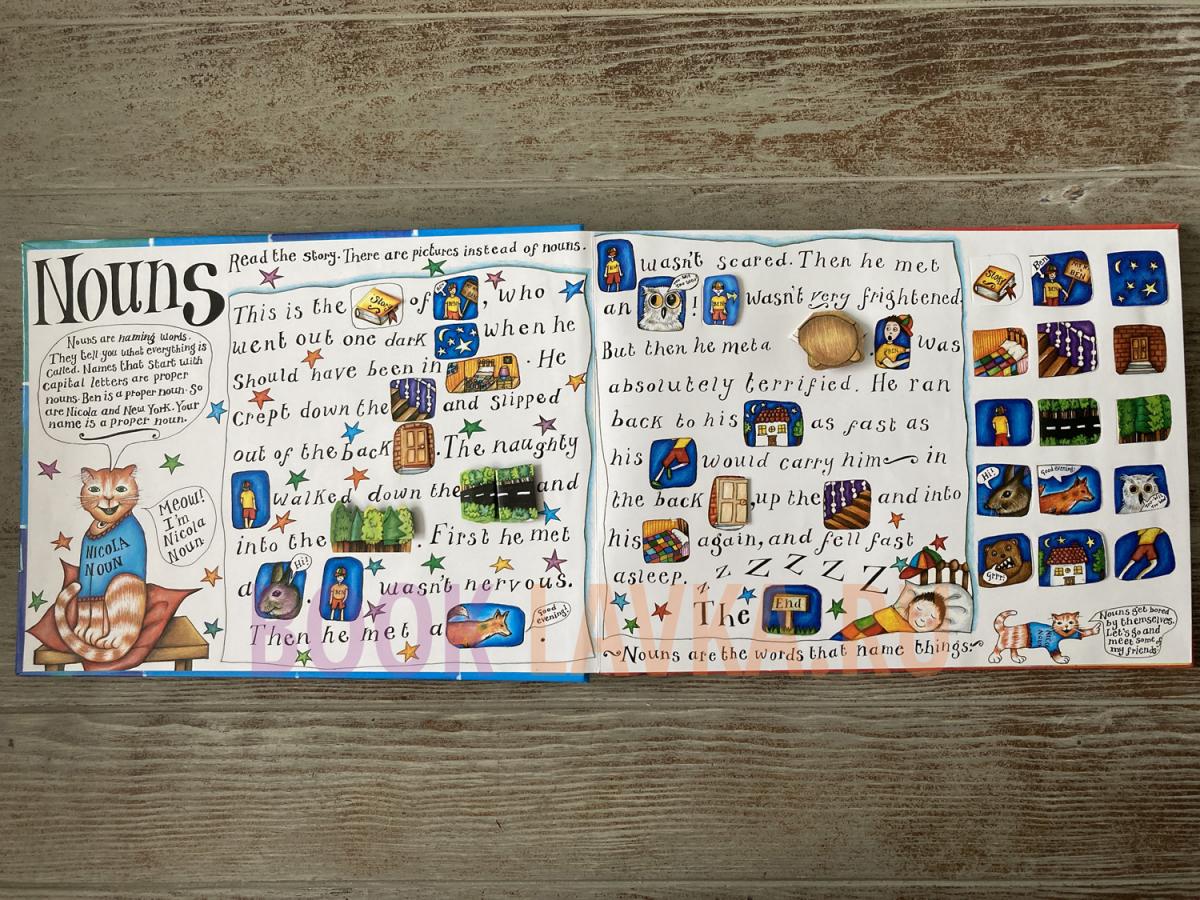 Nouns
Nouns are naming words.
They tell you what everything is
called. Names that start with
capital letters are proper
nouns. Ben is a proper noun. So
are Nicola and New York. Your
name is a proper noun.
Meow!
I'm
Nicola
Noun
NICOLA
NOUN
Read the story. There are pictures instead of nouns.
This is the Story of BEN, who
went out one dark when he
Should have been in . He
crept down the and slipped
out of the back . The naughty
walked down the and
into the . First he met
a Hi! . BEN wasn't nervous.
Then he met a Good evening!
wasn't scared. Then he met
an ! BEN wasn't very frightened.
But then he met a was
absolutely terrified. He ran
back to his as fast as
his would carry him in
the back , up the and into
his again, and fell fast
asleep. z z Z Z Z Z
The End
Nouns are the words that name things.
Story
Ben
BEN
Hi!
Good evening!
Grrr!
Nouns get bored
by themselves.
Let's go and
meet some of
my friends.
BOOK-LAVKA.RU